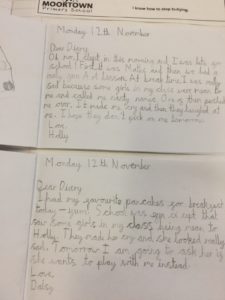 MOOKTOWN
Primary School
I know how to stop bullying.
Monday 12th November
Dear Diary
Oh no! I slept in this morning and I was late for
school! First it was Maths and then we had a
lesson. At lunch time I was really
sad because some girls in my class were mean to
me and called me nasty names. One of them pushed
me over. It made me cry and then they laughed at
me. I hope they don't pick on me tomorrow.
Love
Holly
Monday 12th November
Dear Diary
I had my favourite pancakes for breakfast
today - yum! School was ok except that
saw some girls in my class being mean to
Holly. They made her cry and she looked really
sad. Tomorrow I am going to ask her if
she wants to play with me instead.
Love,
Daisy